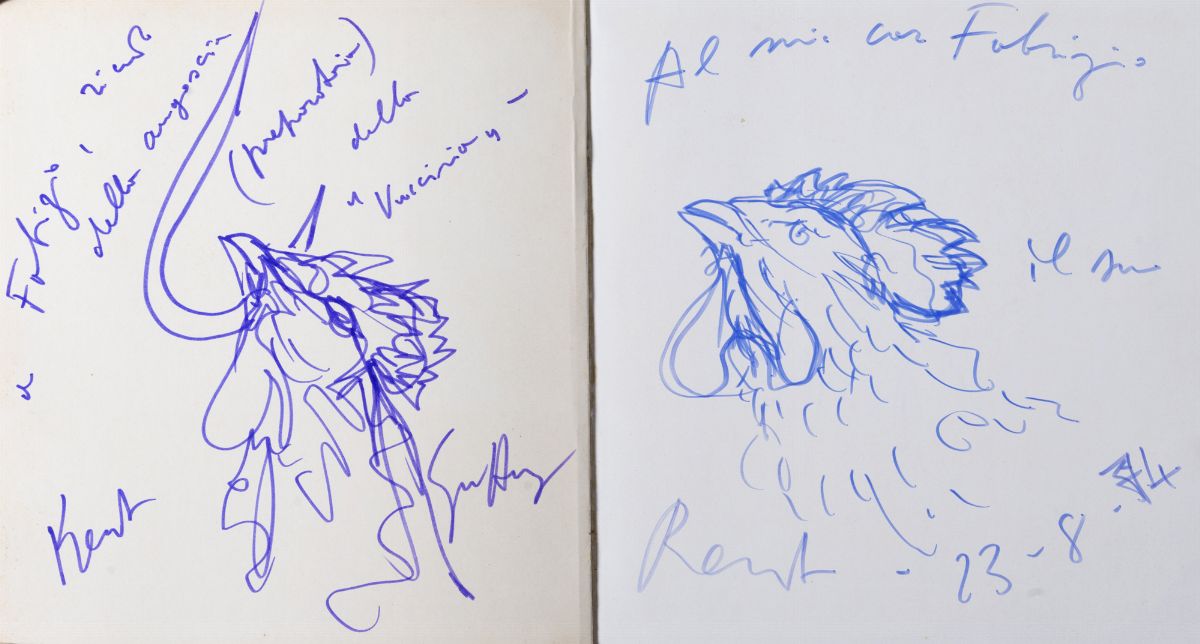 a Fabrizio, ricordo
della angoscia
(preparatoria)
della
"Vucciria" -
Renato
Guttuso
Al mio caro Fabrizio
il suo
Renato - 23-8-74